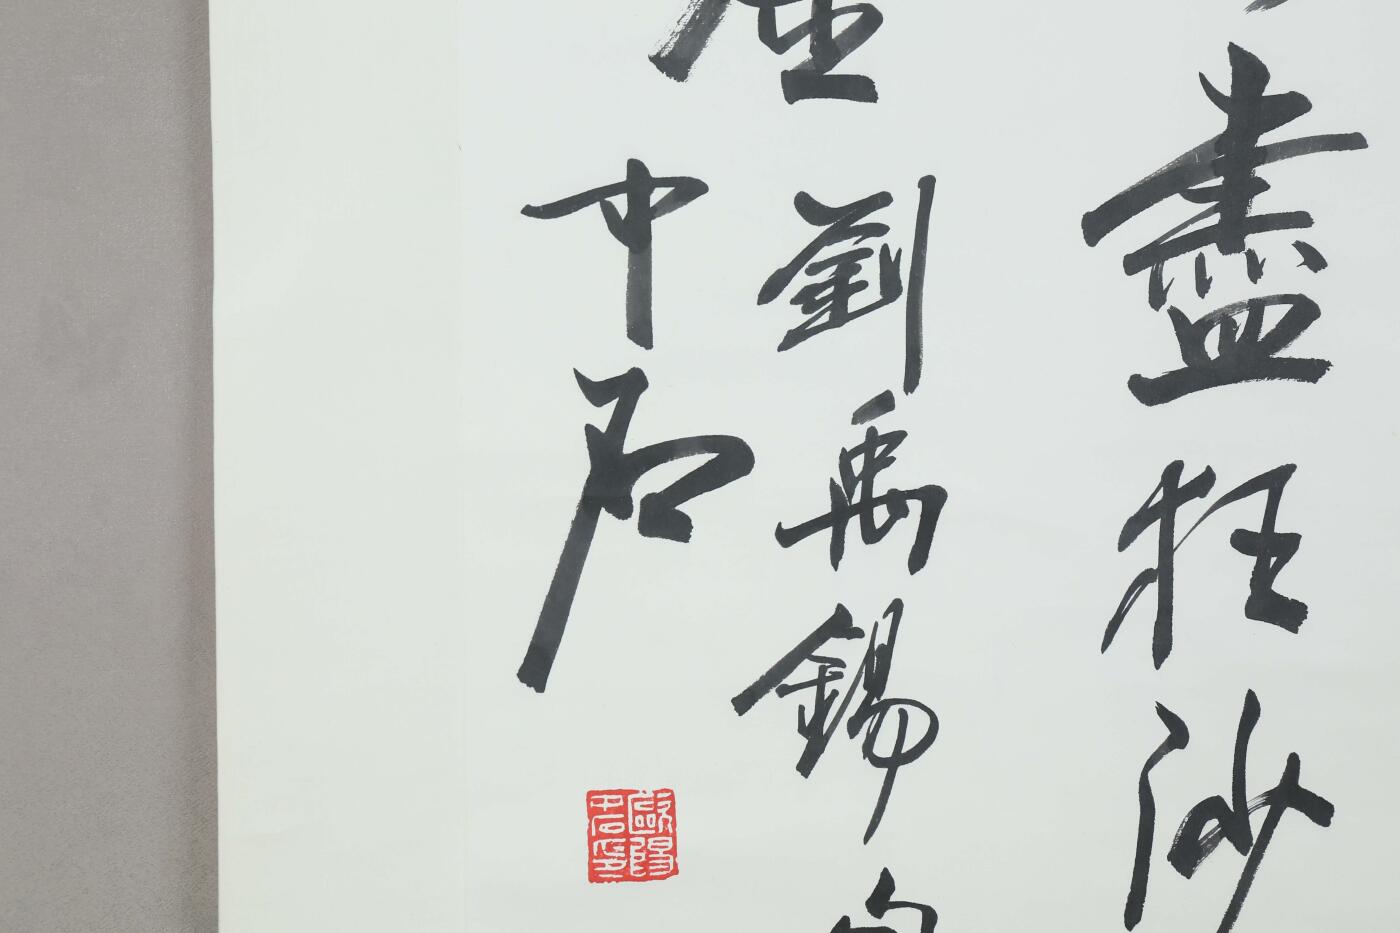 盡狂沙
劉禹錫
中石
歐陽
中石印